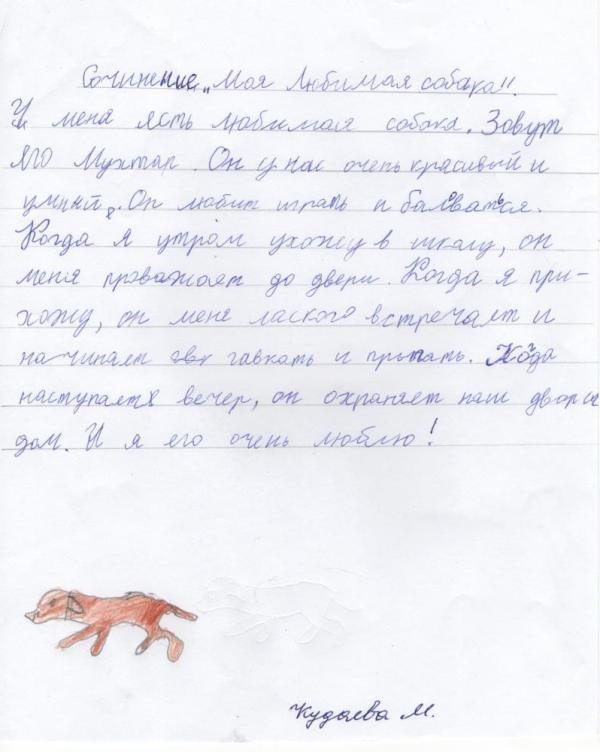 Сочинение „Моя Любимая собака".
У меня ясть любимая собака. Зовут
яго Мухтар. Он у нас очень красивый и
умный. Он любит играть и баловаться.
Когда я утром ухожу в шкалу, он
меня праважает до двери. Когда я при-
хожу, он меня лаского встречает и
начинает гавкать и прыгать. Когда
наступает вечер, он охраняет наш двор и
дом. И я его очень люблю!
Кудаева М.